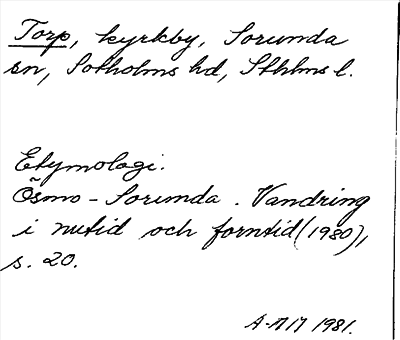 Torp, kyrkby, Sorunda
sn, Sotholms hd, Sthlms l.
Etymologi.
Ösmo - Sorunda. Vandring
i nutid och forntid (1980),
s. 20.
A-M 1981.